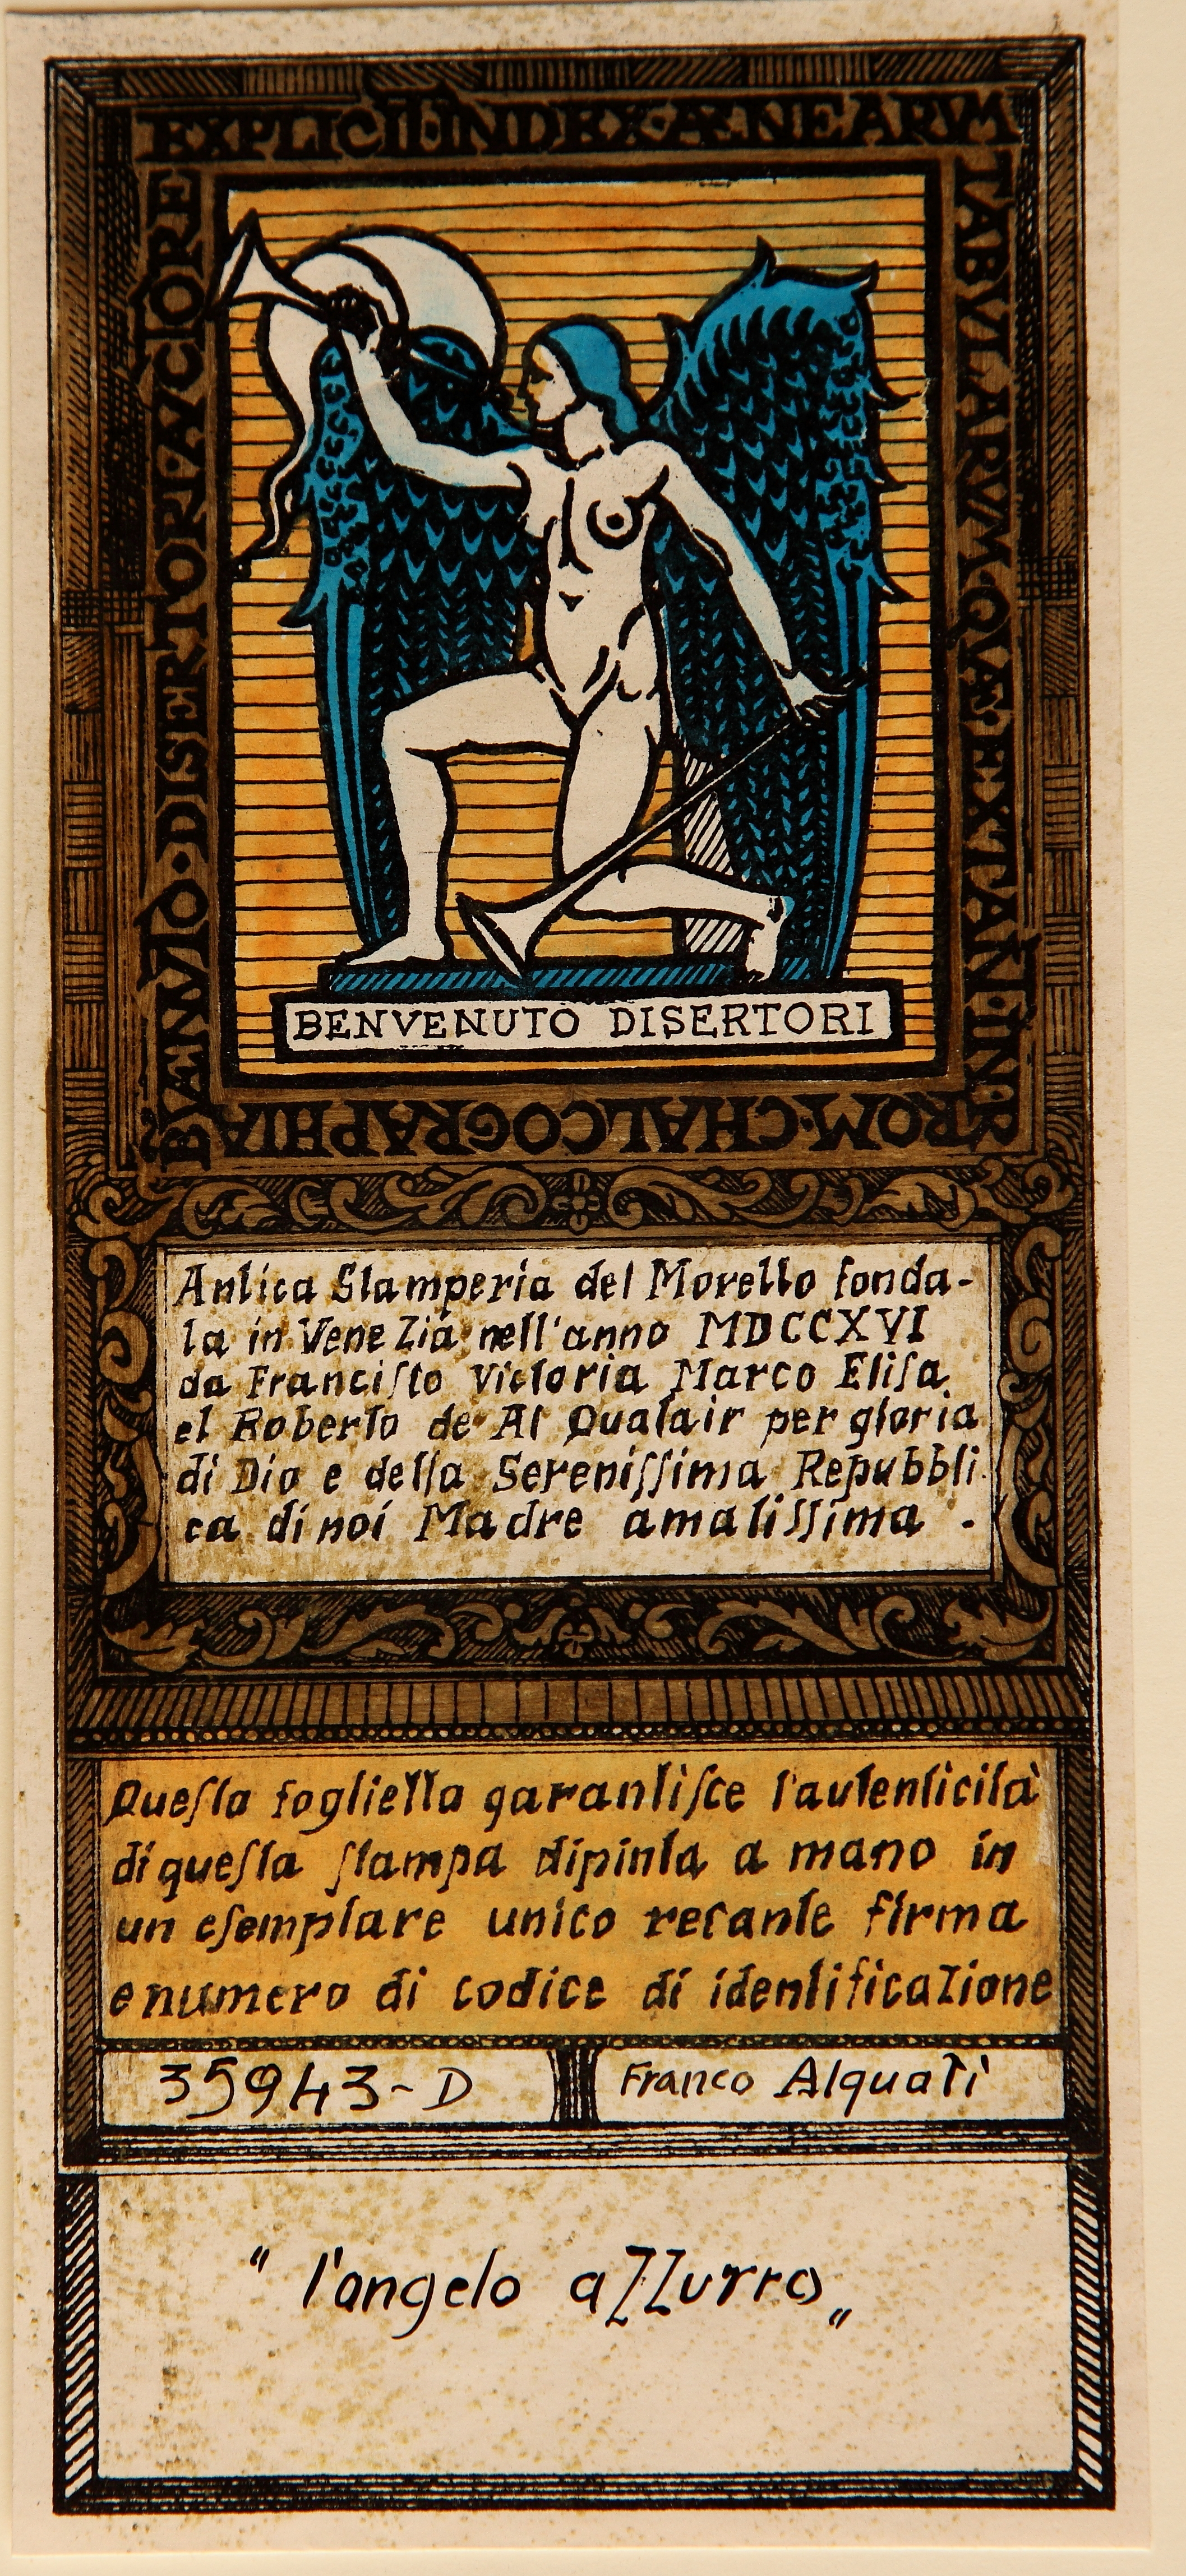 EXPLICIT·INDEX·ÆNEARVM
TABVLARVM·QVÆ·EXTANT·IN·P
ROM·CHALCOGRAPHIA
BÆNVTO·DISERTORI·AVCTORE
BENVENUTO DISERTORI
Antica Stamperia del Morello fonda-
ta in VeneZia nell'anno MDCCXVI
da Franciſto Victoria Marco Eliſa
et Roberto de Al Qualair per gloria
di Dio e della Sereniſſima Repubbli
ca di noi Madre amatiſſima.
Queſta fogliella garantiſce l'autenticità
di queſta ſtampa dipinta a mano in
un eſemplare unico recante firma
e numero di codice di identificaZione
35943-D Franco Alquati
" l'angelo aZZurro „